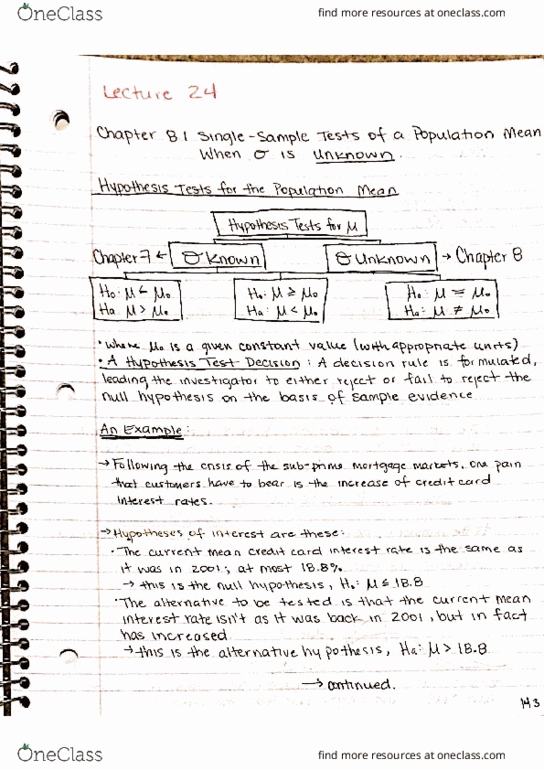 OneClass
find more resources at oneclass.com
Lecture 24
Chapter 8.1 Single-Sample Tests of a Population Mean
When σ is Unknown.
Hypothesis Tests for the Population Mean
Hypothesis Tests for μ
Chapter 7 ← σ Known
σ Unknown → Chapter 8
H₀: μ ≤ μ₀
Ha: μ > μ₀
H₀: μ ≥ μ₀
Ha: μ < μ₀
H₀: μ = μ₀
Ha: μ ≠ μ₀
• Where μ₀ is a given constant value (with appropriate units)
• A Hypothesis Test Decision: A decision rule is formulated,
leading the investigator to either reject or fail to reject the
null hypothesis on the basis of sample evidence
An Example:
→ Following the crisis of the sub-prime mortgage markets, one pain
that customers have to bear is the increase of credit card
interest rates.
→ Hypotheses of interest are these:
• The current mean credit card interest rate is the same as
it was in 2001; at most 18.8%
→ this is the null hypothesis, H₀: μ ≤ 18.8
• The alternative to be tested is that the current mean
interest rate isn't as it was back in 2001, but in fact
has increased
→ this is the alternative hypothesis, Ha: μ > 18.8
→ continued.
143
OneClass
find more resources at oneclass.com